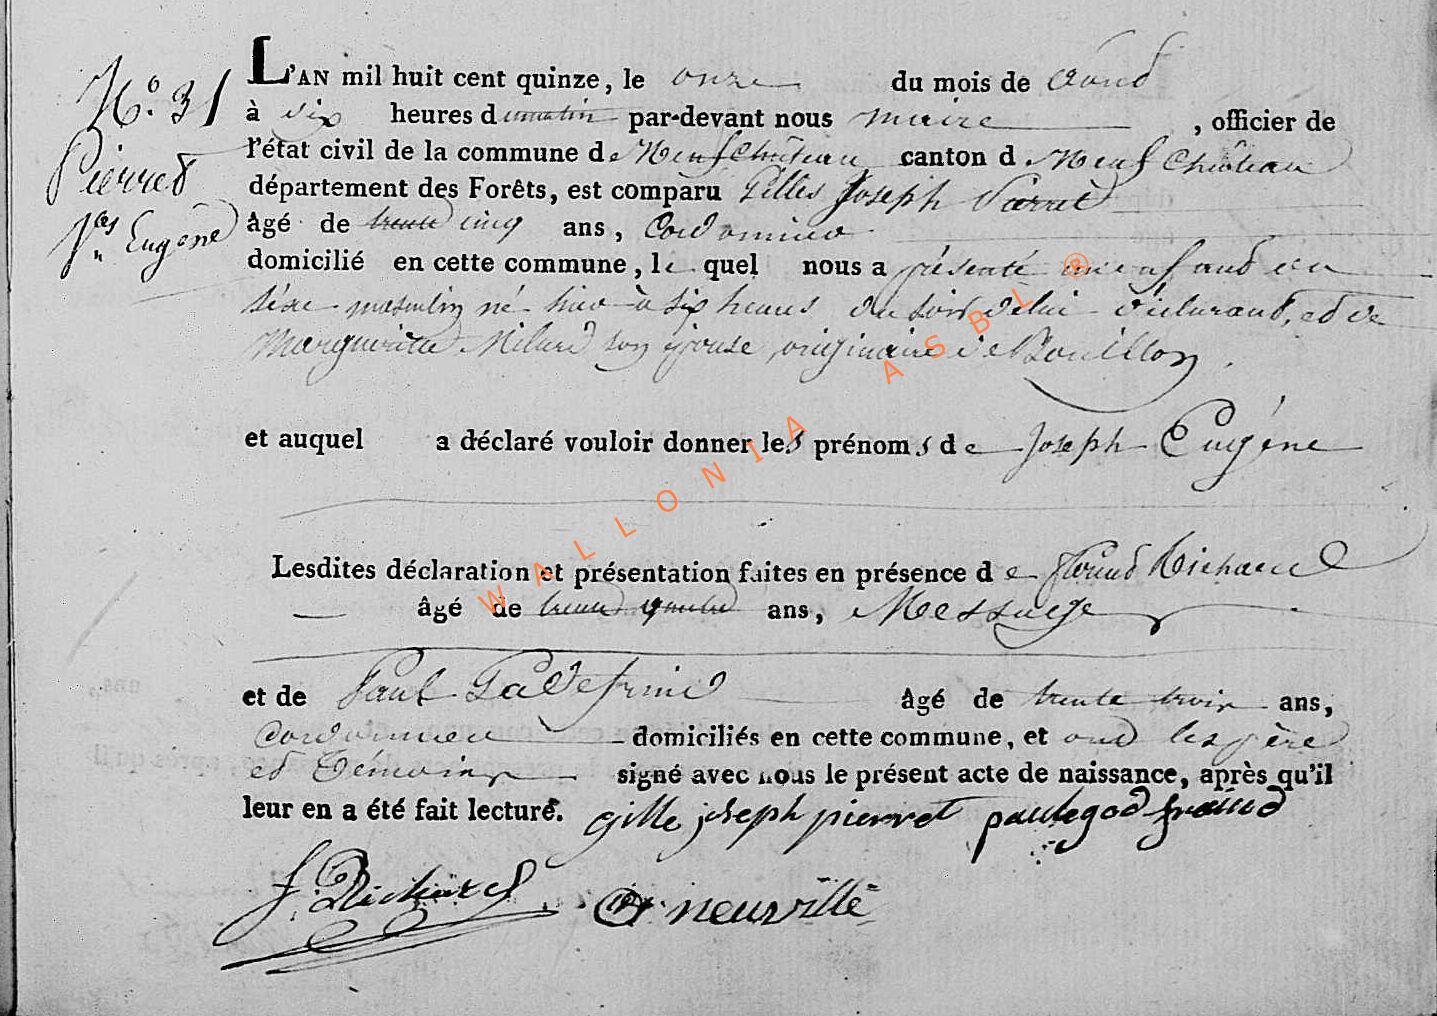 N.° 31
Pierret
J.ph Eugène
L'AN mil huit cent quinze, le onze du mois de aoust
à dix heures du matin par-devant nous maire , officier de
l'état civil de la commune de Neufchâteau canton d Neufchâteau
département des Forêts, est comparu Gilles Joseph Pierret
âgé de trente cinq ans, Cordonnier
domicilié en cette commune, le quel nous a présenté un enfant du
sexe masculin né hier à six heures du soir de lui déclarant, et de
Marguerite son épouse originaire de Bouillon
et auquel a déclaré vouloir donner les prénoms de Joseph Eugène
Lesdites déclaration et présentation faites en présence de Richard
âgé de trente quatre ans, Messager
et de Paul âgé de trente trois ans,
Cordonnier domiciliés en cette commune, et ont les père
et Témoins signé avec nous le présent acte de naissance, après qu'il
leur en a été fait lecture. gille joseph pierret paul
f. Richard neuville
WALLONIA ASBL ®